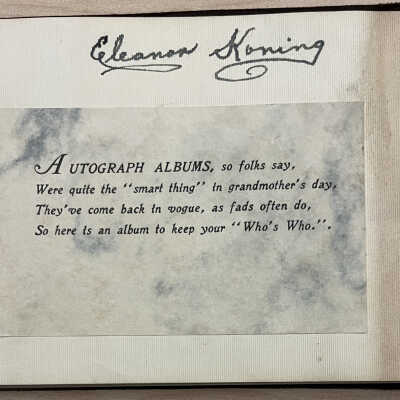 Eleanor Koning
AUTOGRAPH ALBUMS, so folks say,
Were quite the "smart thing" in grandmother's day,
They've come back in vogue, as fads often do,
So here is an album to keep your "Who's Who.".